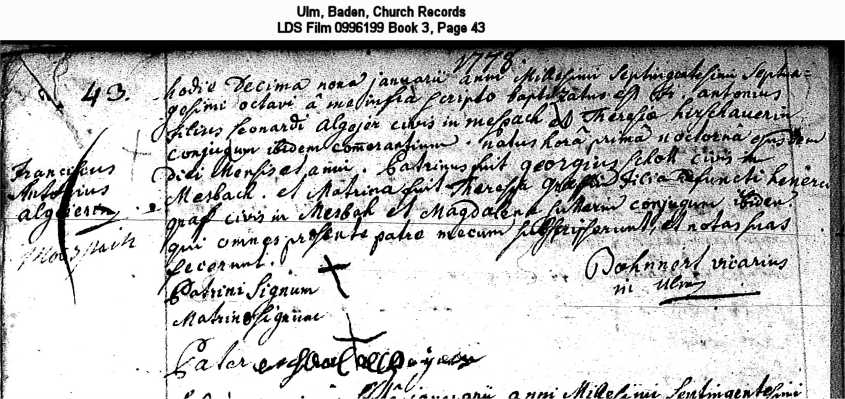 Ulm, Baden, Church Records
LDS Film 0996199 Book 3, Page 43
1778
43.
hodie Decima nona januarii anni Millesimi Septingentesimi Septua=
gesimi octavi â me infra scripto baptizatus est Fr. antonius
filius Leonardi Algojer civis in mesbach et Theresiæ herschauerin
conjugum ibidem comorantium. natus horâ primâ nocturna ejusdem
diei Mensis et anni. Patrinus fuit georgius schott civis in
Mesbach. et Matrina fuit Theresia grafin filia defuncti henerici
graf civis in Mesbach et Magdalena conjugum ibidem
qui omnes præsente patre mecum subscripserunt, et notas suas
fecerunt.
Franciscus
Antonius
algeierin
Mosbach
Patrini Signum
Matrinæ Signum
Pater
Bohnnert vicarius
in Ulm
januarii anni Millesimi Septingentesimi